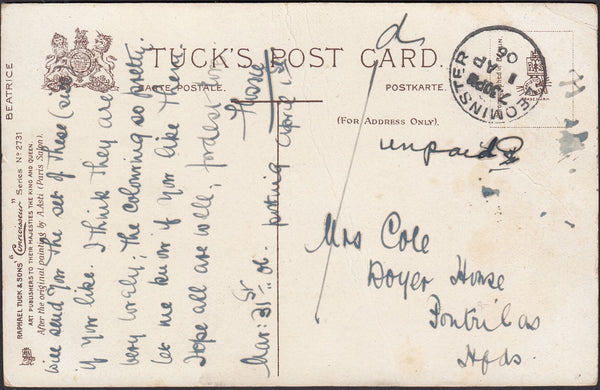 BEATRICE
RAPHAEL TUCK & SONS' "Connoisseur" Series No 2731
ART PUBLISHERS TO THEIR MAJESTIES THE KING AND QUEEN.
After the original painting by A. Asti (Paris Salon).
TUCK'S POST CARD.
CARTE POSTALE.
POSTKARTE.
(FOR ADDRESS ONLY).
will send you the set of these Cards
if you like. I think they are
very lovely; the colouring so pretty.
let me know if you like them
Hope all are well; fondest love
Flossie
Mar: 31st 06. posting April 1st
1d
LEOMINSTER
7.30PM
1
AP
06
unpaid
Mrs Cole
Doyer House
Pontrilas
Hfds.